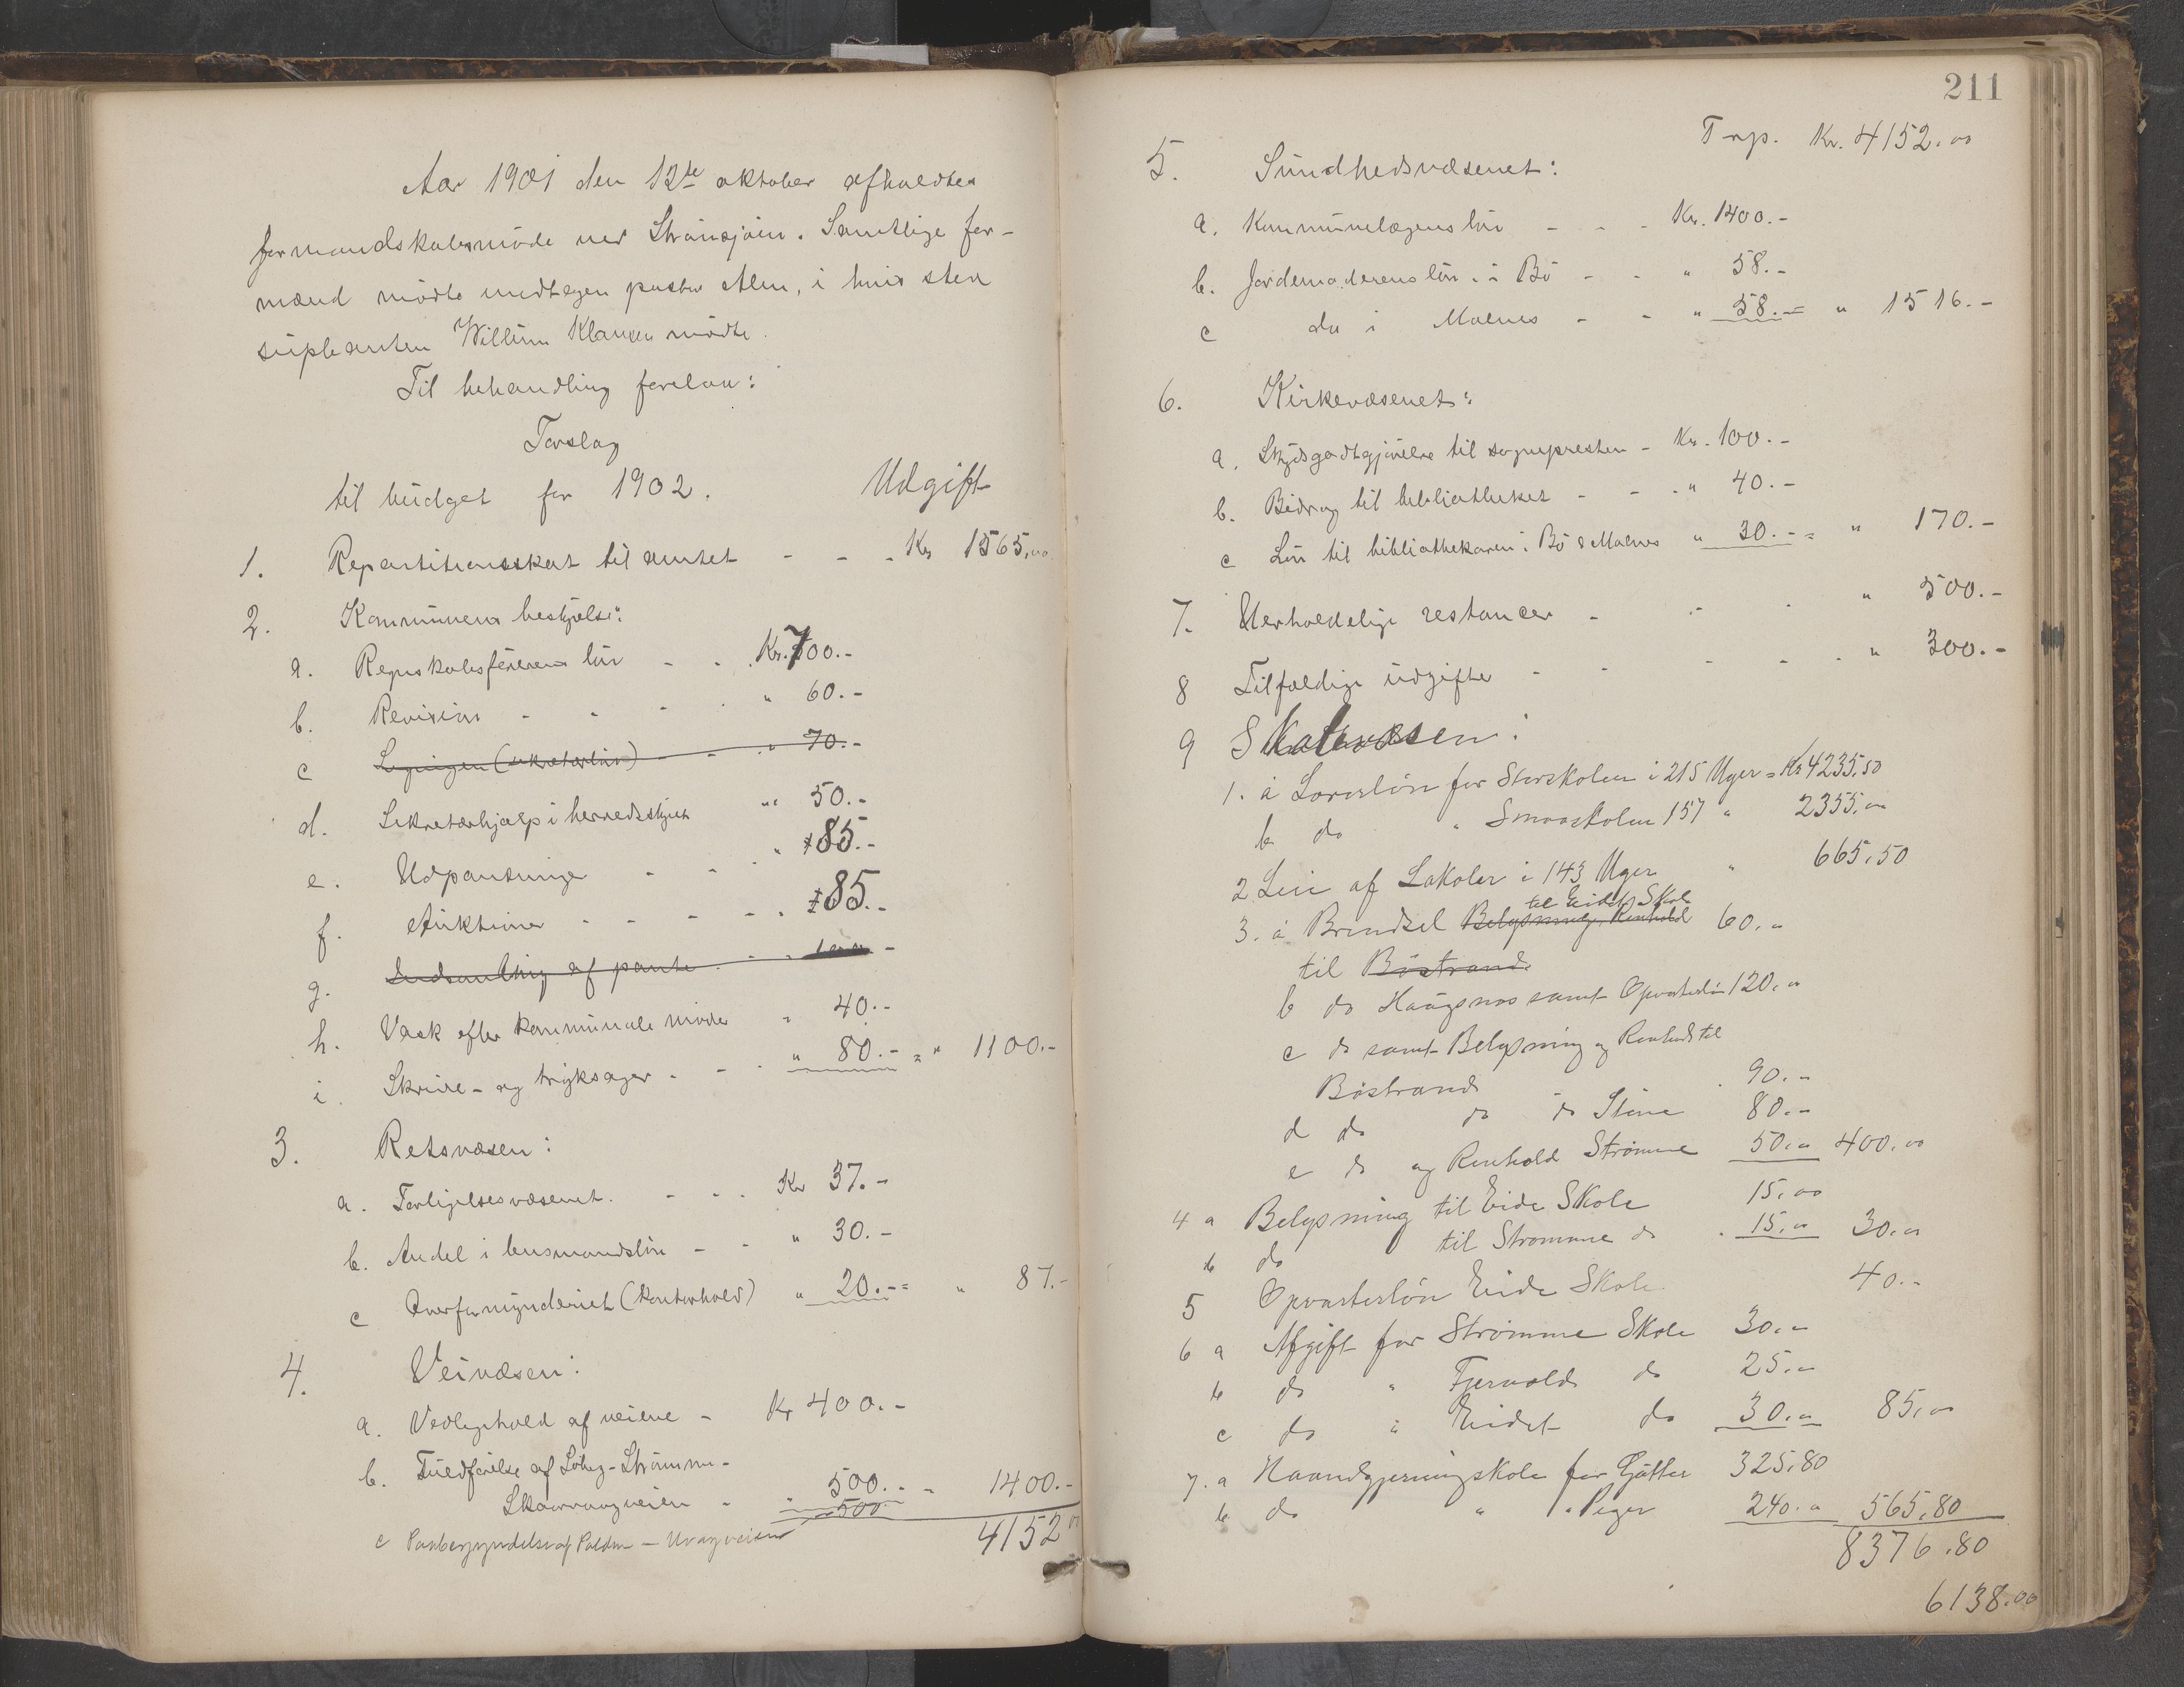 Aar 1901 den 12te oktober afholdtes
formandskabsmöde ved Straumsjöen. Samtlige for-
mænd mödte undtagen pastor Alm, i hvis sted
supleanten Willum Klausen mödte.
Til behandling forelaa:
Forslag
til budget for 1902. Udgift
1. Repartitionsskat til amtet - - - Kr 1565,00
2. Kommunens bestyrelse:
a. Regnskabsförerens lön - - . Kr. 700.-
b. Revision - - - . " 60.-
c Ligningen (sekretærlön) - - " 70.-
d. Sekretærhjælp i herredsstyret " 50.-
e. Udpantninge - - " 85.-
f. Auktioner - - - - . 85.-
g. Indsamling af pante - - 100 -
h. Vask efter kommunale möder " 40.-
i. Skrive- og tryksager - - . " 80.- = " 1100.-
3. Retsvæsen:
a. Forligelsesvæsenet. - - . Kr 37.-
b. Andel i lensmandslön - - " 30.-
c Overformynderiet (kontorhold) " 20.-= " 87.-
4. Veivæsen:
a. Vedligehold af veiene - Kr 400.-
b. Fuldförelse af -Strömme-
Skaarvaagveien - " 500.- - 1400.-
c Paabegyndelse af - veien 500
4152 00
211
Trp. Kr. 4152.00
5. Sundhedsvæsenet:
a. Kommunelægens lön - - - Kr. 1400.-
b. Jordemoderens lön i Bö - - " 58.-
c do i Malnes - - " 58.-= " 1516.-
6. Kirkevæsenet:
a. Skydsgodtgjörelse til sognepresten - Kr. 100.-
b. Bidrag til bibliotheket - - . " 40.-
c Lön til bibliothekaren i Bö & Malnes " 30.-= " 170.-
7. Uerholdelige restancer - - . " 500.-
8 Tilfældige udgifter - - - - . " 300.-
9 Skolevæsen:
1. a Lærerlön for Storskolen i 215 Uger = Kr 4235,50
b do " Smaaskolen 157 " 2355,00
2 Leie af Lokaler i 143 Uger " 665,50
til Eidets Skole
3. a Brændsel Belysning, Renhold 60.-
til Böstrand
b do Haugsnes samt Opvarterlön 120,00
c do samt Belysning og Renhold til
Böstrand . 90.-
d do do do Stene 80.-
e do og Renhold Strömme 50,00 400,00
4 a Belysning til Eide Skole 15,00
b do til Strömme do . 15,00 30,00
5 Opvarterlön Eide Skole 40.-
6 a Afgift for Strömme Skole 30.-
b do " Fjervold do 25.-
c do " Eidet do 30,00 85,00
7. a Haandgjerningskole for Gutter 325,80
b do " " Piger 240.00 565,80
8376.80
6138.00